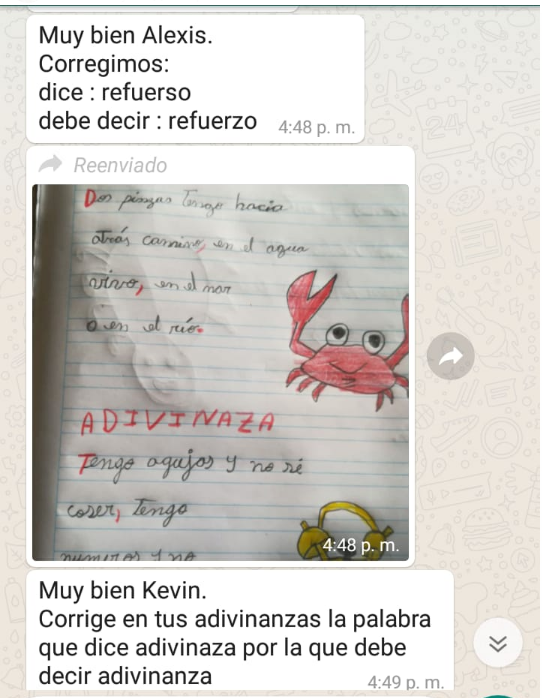 Muy bien Alexis.
Corregimos:
dice : refuerso
debe decir : refuerzo
4:48 p. m.
Reenviado
Dos pinzas Tengo hacia
atrás camino, en el agua
vivo, en el mar
o en el río.
ADIVINAZA
Tengo agujas y no sé
coser, Tengo
numeros y no
4:48 p. m.
Muy bien Kevin.
Corrige en tus adivinanzas la palabra
que dice adivinaza por la que debe
decir adivinanza
4:49 p. m.
24